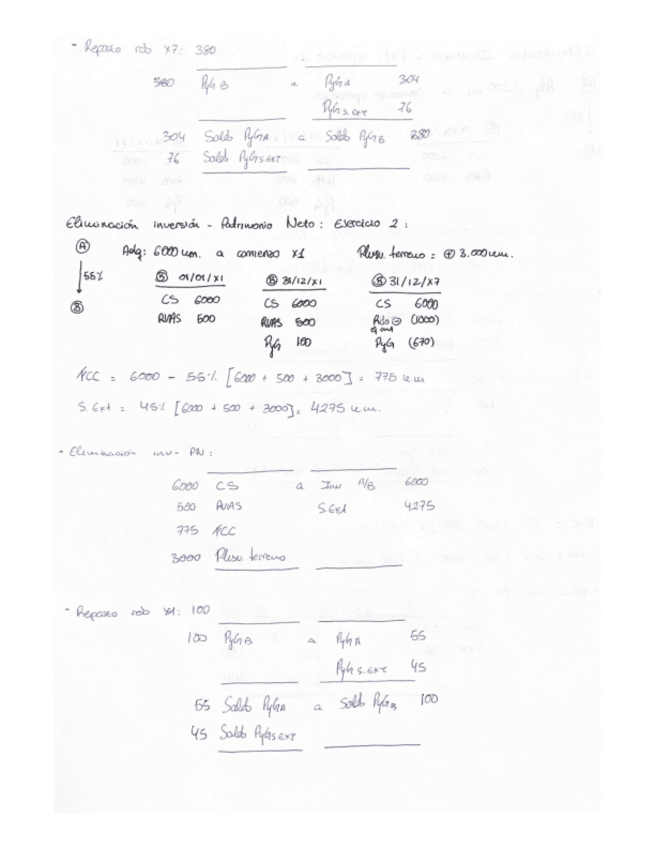 - Reparto rdo X7: 380
380 PyG B a PyG A 304
PyG S.EXT 76
304 Saldo PyG A a Saldo PyG B 380
76 Saldo PyG S.EXT
Eliminación inversión - Patrimonio Neto: Ejercicio 2:
A Adq: 6000 um. a comienzo X1 Plusv. terreno = + 3.000 um.
55%
B
B 01/01/X1 B 31/12/X1 B 31/12/X7
CS 6000 CS 6000 CS 6000
RVAS 500 RVAS 500 Rdo ⊖ (1000)
PyG 100 PyG (670)
FCC = 6000 - 55% [6000 + 500 + 3000] = 775 um
S. Ext = 45% [6000 + 500 + 3000] = 4275 um.
- Eliminación inv - PN:
6000 CS a Inv A/B 6000
500 RVAS S.Ext 4275
775 FCC
3000 Plusv. terreno
- Reparto rdo X1: 100
100 PyG B a PyG A 55
PyG S.EXT 45
55 Saldo PyG A a Saldo PyG B 100
45 Saldo PyG S.EXT